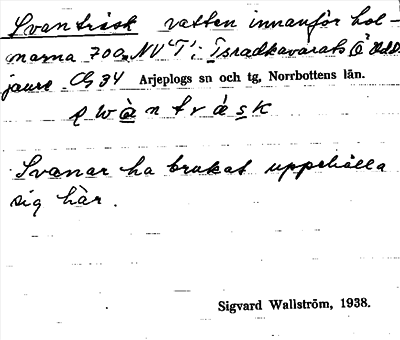 Svanträsk vatten innanför hol-
marna 700 m NV "T" i Tsradkavarats Ö Udd
jaure. Cg 34 Arjeplogs sn och tg, Norrbottens län.
s w à n t r ä s k
Svanar ha brukat uppehålla
sig här.
Sigvard Wallström, 1938.